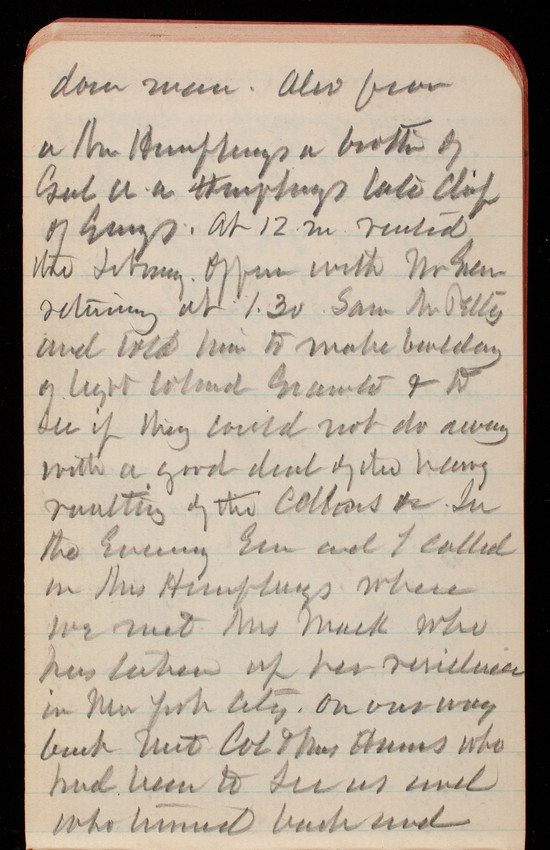 down man. Also from
a Mr Humphreys a brother of
Genl A. A. Humphreys late Chief
of Engrs. At 12 m visited
the Library Office with Mr Green
returning at 1.30 Saw Mr Pelty
and told him to make building
of light colored Granite & to
see if they could not do away
with a good deal of the heavy
vaulting of the Cellars &c. In
the Evening Gen and I called
on Mrs Humphreys where
we met Mrs Mack who
has taken up her residence
in New York City. On our way
back met Col & Mrs who
had been to see us and
who turned back and